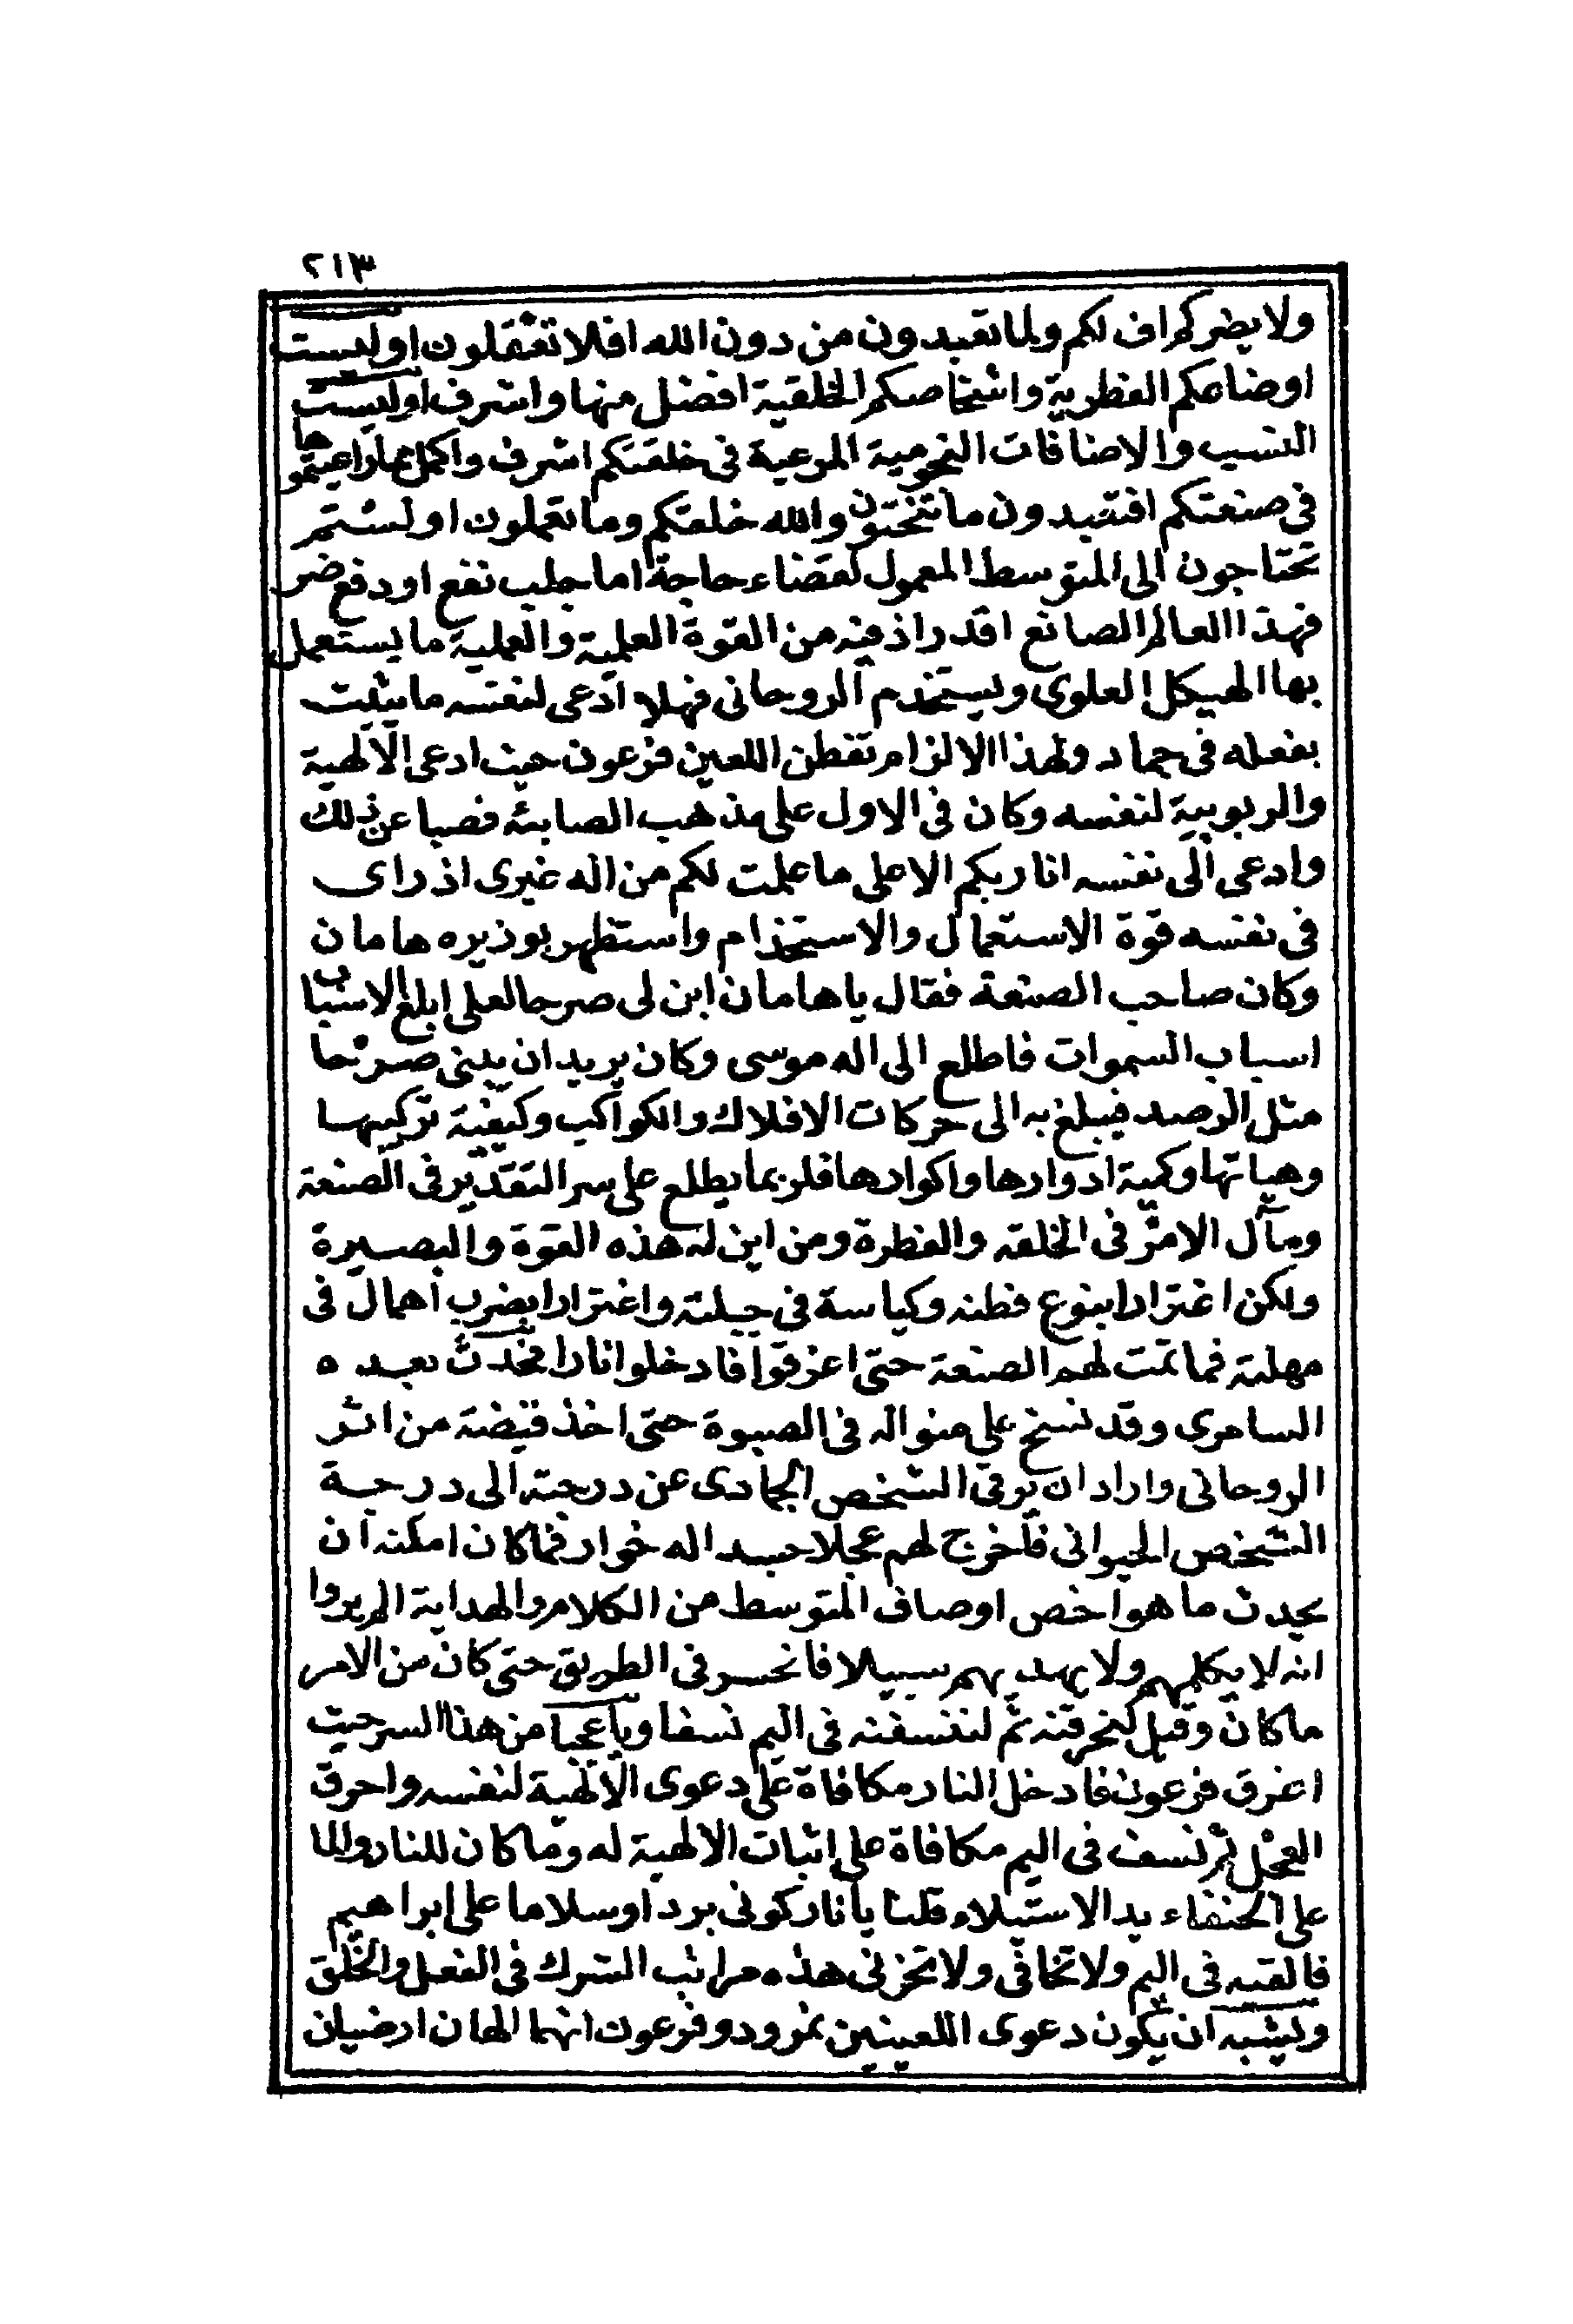 ٢١٣
ولا يضركم اف لكم ولما تعبدون من دون الله افلا تعقلون اوليست
اوضاعكم الفطرية واشخاصكم الخلقية افضل منها واشرف اوليست
النسب والاضافات النجومية المرعية فى خلقتكم اشرف واكمل مما راعيتموها
فى صنعتكم افتعبدون ما تنحتون والله خلقكم وما تعملون او لستم
تحتاجون الى المتوسط المعمول لقضاء حاجة اما جلب نفع او دفع ضر
فهذا العالم الصانع اقدر اذ فيه من القوة العلمية والعملية ما يستعمل
بها الهيكل العلوى ويستخدم الروحانى فهلا ادعى لنفسه ما يثبت
بفعله فى جماد ولهذا الالزام تفطن اللعين فرعون حيث ادعى الالهية
والربوبية لنفسه وكان فى الاول على مذهب الصابئه فصبا عن ذلك
وادعى الى نفسه انا ربكم الاعلى ما علمت لكم من اله غيرى اذ راى
فى نفسه قوة الاستعمال والاستخدام واستظهر بوزيره هامان
وكان صاحب الصنعة فقال يا هامان ابن لى صرحا لعلى ابلغ الاسباب
اسباب السموات فاطلع الى اله موسى وكان يريد ان يبنى صرحا
مثل الرصد فيبلغ به الى حركات الافلاك والكواكب وكيفية تركيبها
وهياتها وكمية ادوارها واكوارها فلربما يطلع على سر التقدير فى الصنعة
ومآل الامر فى الخلقه والفطرة ومن اين له هذه القوة والبصيرة
ولكن اغترارا بنوع فطنه وكياسة فى جبلته واغترارا بضرب اهمال فى
مهلته فما تمت لهم الصنعة حتى اغرقوا فادخلوا نارا فحدث بعده
السامرى وقد نسخ على منواله فى الصبوة حتى اخذ قبضة من اثر
الروحانى واراد ان يرقى الشخص الجمادى عن درجته الى درجة
الشخص الحيوانى فاخرج لهم عجلا جسد اله خوار فما كان امكنه ان
يحدث ما هو اخص اوصاف المتوسط من الكلام والهداية الم يروا
انه لا يكلمهم ولا يهديهم سبيلا فانحسر فى الطريق حتى كان من الامر
ما كان وقيل لنحرقنه ثم لننسفنه فى اليم نسفا ويا عجبا من هذا السر حيث
اغرق فرعون فادخل النار مكافاة على دعوى الالهية لنفسه واحرق
العجل ثم نسف فى اليم مكافاة على اثبات الالهية له وما كان للنار والما
على الحنفاء يد الاستيلاء قلنا يا نار كونى بردا وسلاما على ابراهيم
فالقيه فى اليم ولا تخافى ولا تحزنى هذه مراتب الشرك فى الفعل والخلق
ويشبه ان يكون دعوى اللعينين نمرود وفرعون انهما الهان ارضيان